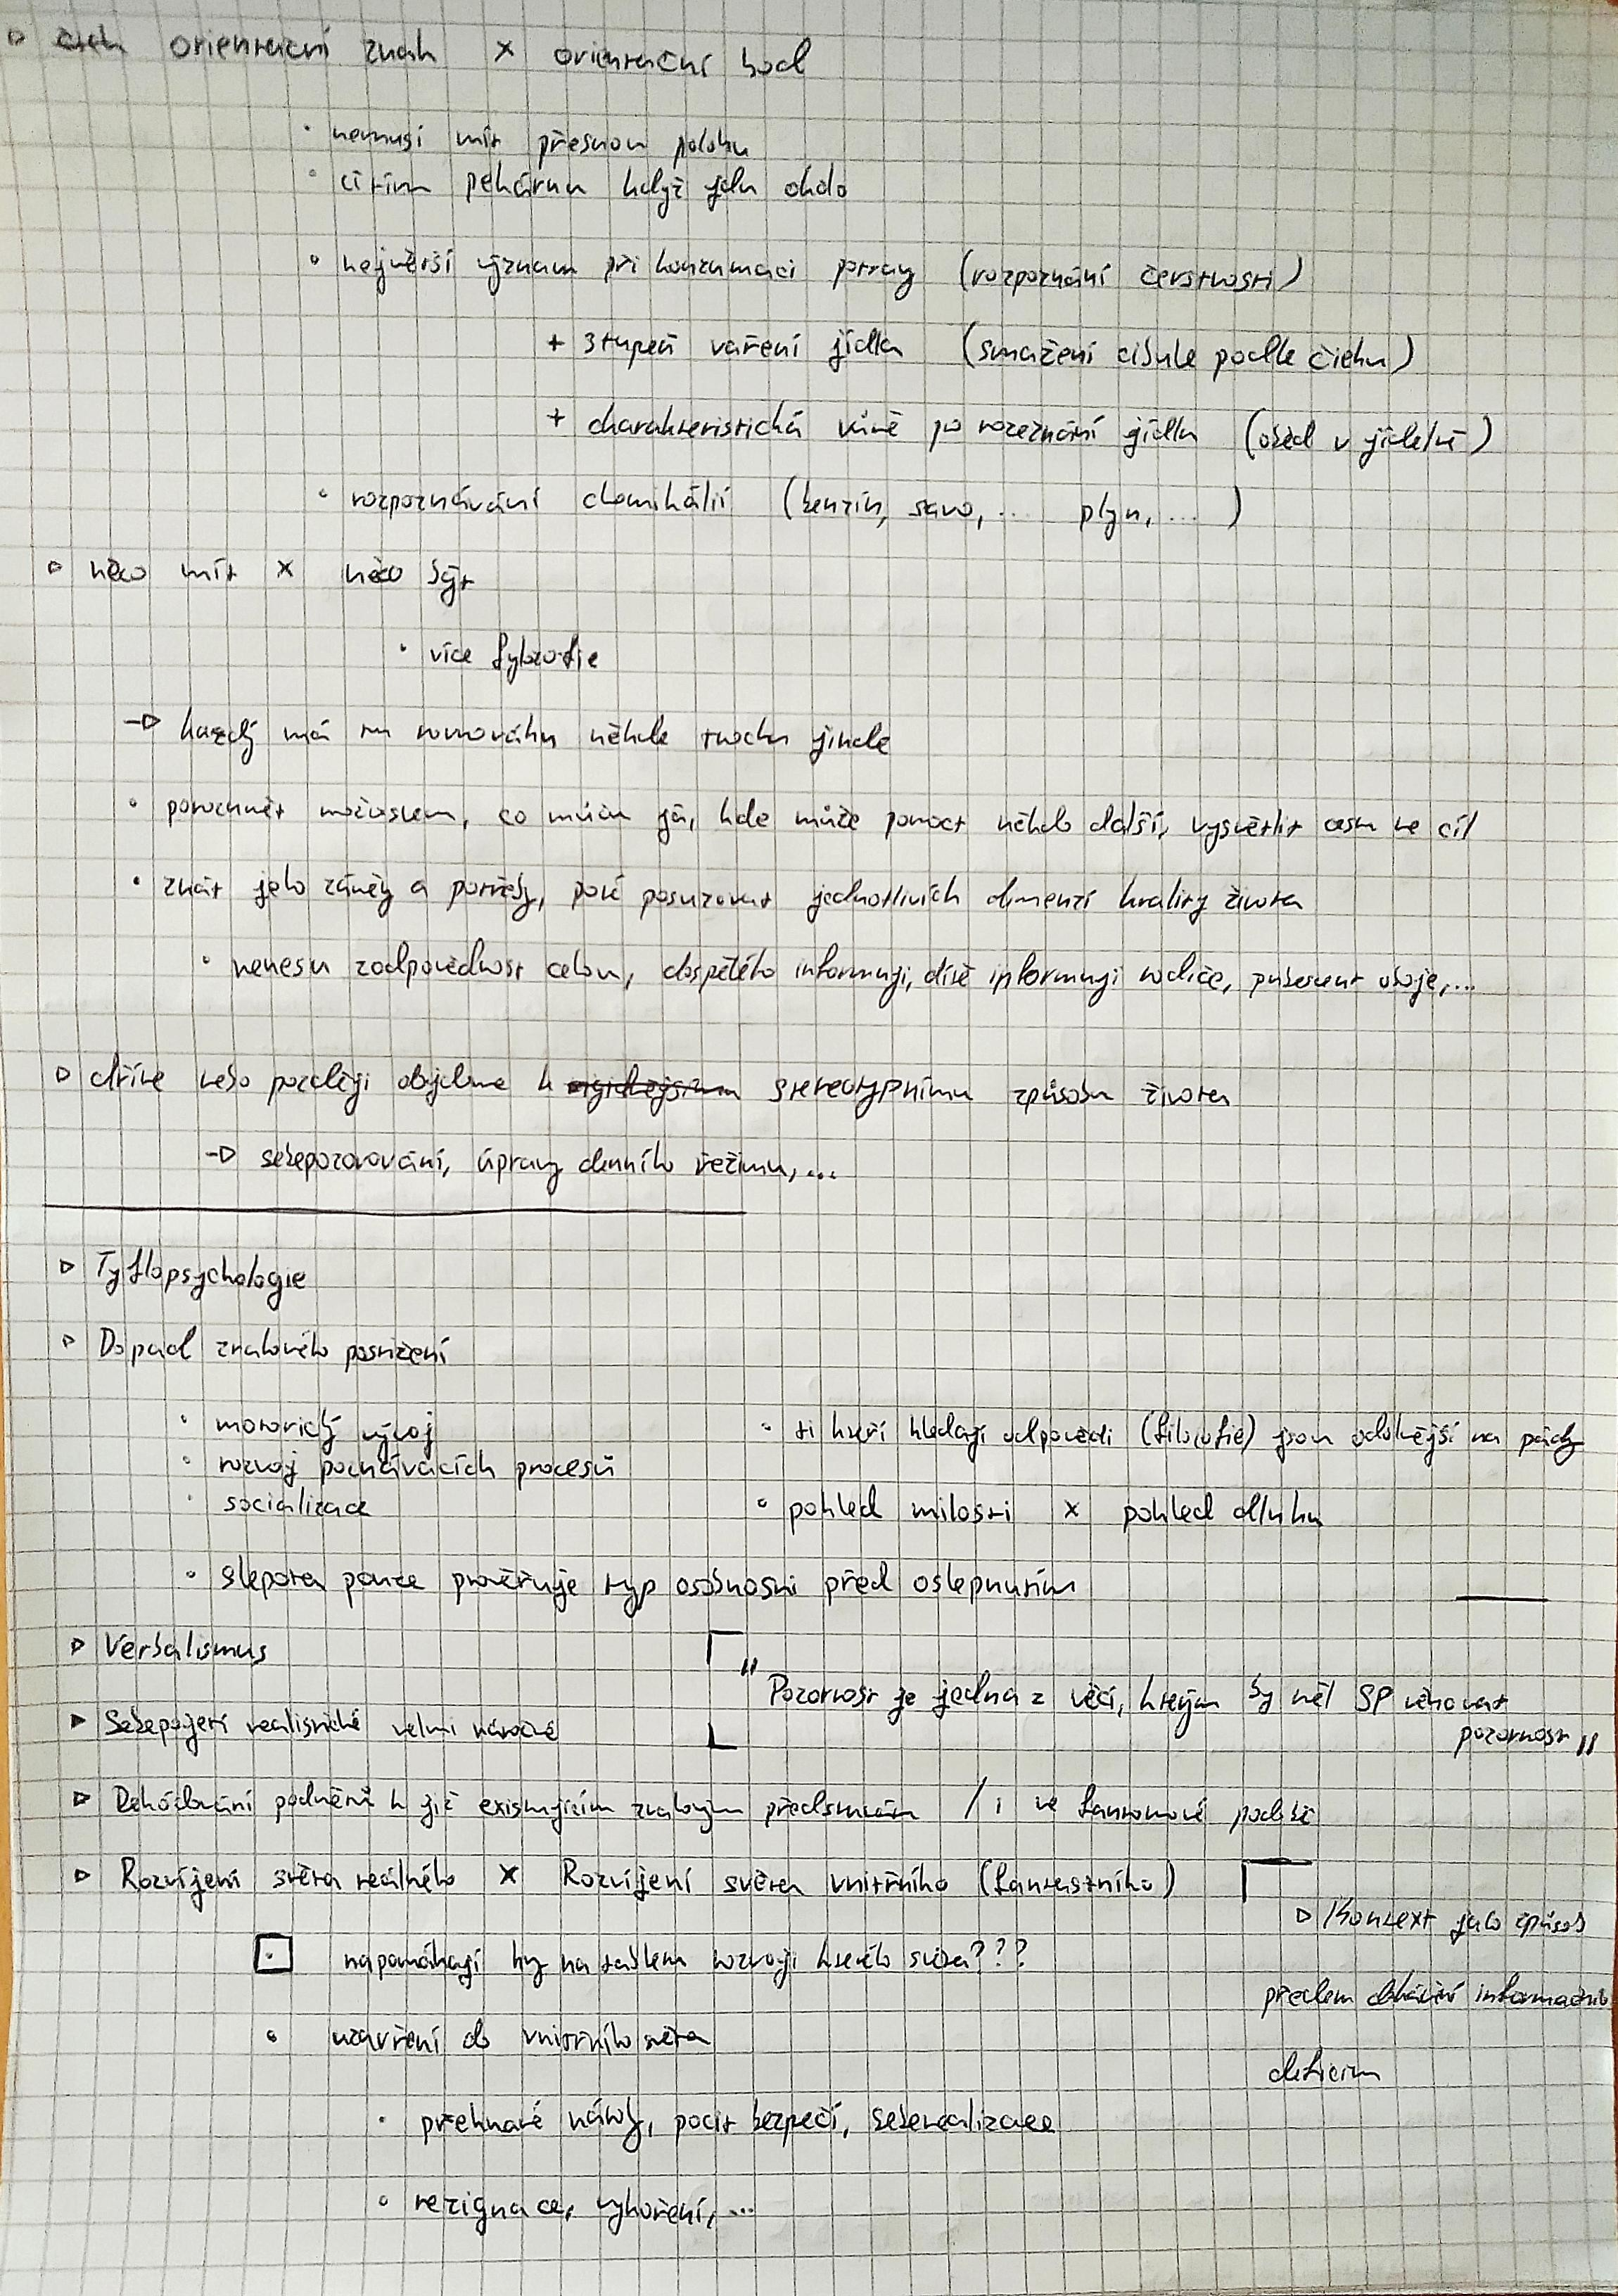 ▷ čich orientační znak × orientační bod
• nemusí mít přesnou polohu
• cítím pekárnu když jdu okolo
• největší význam při konzumaci potravy (rozpoznání čerstvosti)
+ stupeň vaření jídla (smažení cibule podle čichu)
+ charakteristická vůně po rozeznání jídla (oběd v jídelně)
• rozpoznávání chemikálií (benzín, savo, ... plyn, ... )
▷ něco mít × něco být
• více fylozofie
→ každý má tu rovnováhu někde trochu jinde
• porozumět možnostem, co můžu já, kde může pomoct někdo další, vysvětlit cestu ne cíl
• znát jeho záměry a potřeby, poté posuzovat jednotlivích dimenzí kvality života
• nenesu zodpovědnost celou, dospělého informuji, dítě informuji rodiče, pubescent oboje,...
▷ dříve nebo později dojdeme k stereotypnímu způsobu života
→ sebepozorování, úpravy denního režimu,...
▷ Tyflopsychologie
▷ Dopad zrakového postižení
• motorický vývoj
• rozvoj poznávacích procesů
• socializace
• ti kteří hledají odpovědi (filozofie) jsou odolnější na pády
• pohled milosti × pohled dluhu
• slepota pouze prověřuje typ osobnosti před oslepnutím
▷ Verbalismus
"Pozornost je jedna z věcí, kterým by měl SP věnovat
pozornost"
▷ Sebepojetí realistické velmi náročné
▷ Dekódování podnětů k již existujícím zrakovým představám / i ve fantomové podobě
▷ Rozvíjení světa reálného × Rozvíjení světa vnitřního (fantastního)
▷ Kontext jako způsob
předem dohánění informačního
deficitu
• napomáhají hry na tašlem rozvoji kterého světa???
• uzavření do vnitřního světa
• přehnané nároky, pocit bezpečí, seberealizace
• rezignace, vyhoření,...